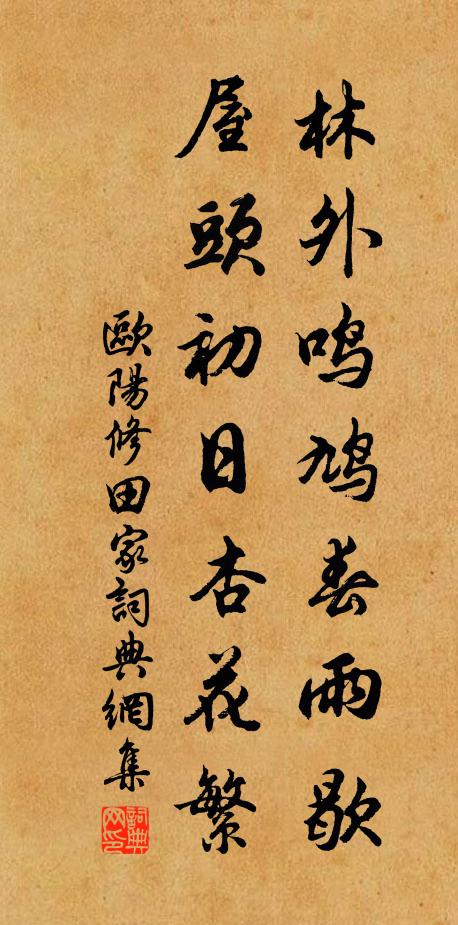 林外鸣鸠春雨歇
屋頭初日杏花繁
歐陽修田家詞典網集
詞典网印